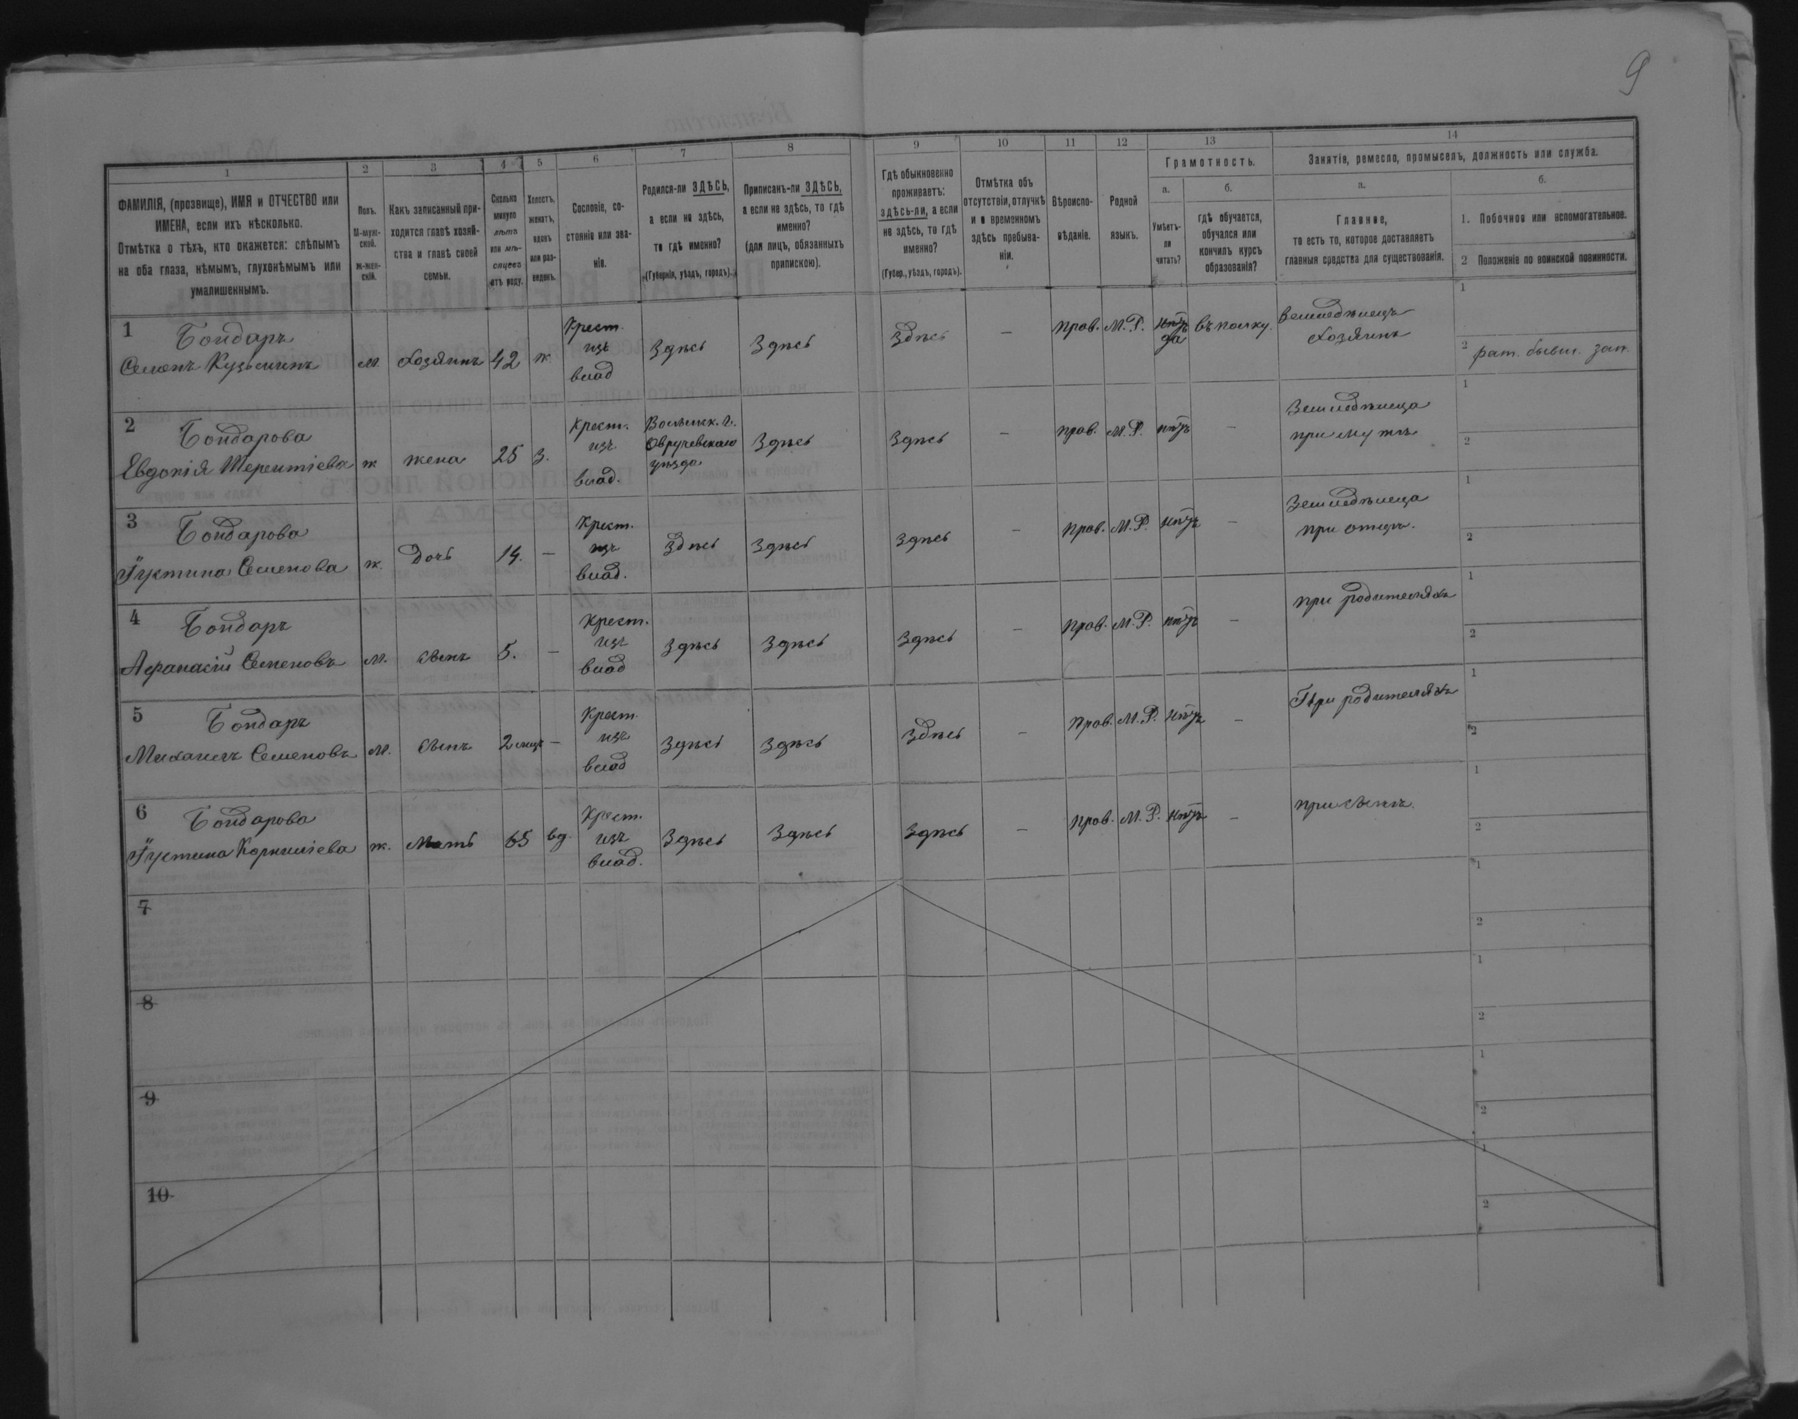 9
1
ФАМИЛІЯ, (прозвище), ИМЯ и ОТЧЕСТВО или
ИМЕНА, если ихъ нѣсколько.
Отмѣтка о тѣхъ, кто окажется: слѣпымъ
на оба глаза, нѣмымъ, глухонѣмымъ или
умалишеннымъ.
2
Полъ.
М-муж-
ской.
ж-жен-
скій.
3
Какъ записанный при-
ходится главѣ хозяй-
ства и главѣ своей
семьи.
4
Сколько
минуло
лѣтъ
или мѣ-
сяцевъ
отъ роду.
5
Холостъ,
женатъ,
вдовъ
или раз-
веденъ.
6
Сословіе, со-
стояніе или зва-
ніе.
7
Родился-ли ЗДѢСЬ,
а если не здѣсь,
то гдѣ именно?
(Губернія, уѣздъ, городъ).
8
Приписанъ-ли ЗДѢСЬ,
а если не здѣсь, то гдѣ
именно?
(для лицъ, обязанныхъ
припискою).
9
Гдѣ обыкновенно
проживаетъ:
здѣсь-ли, а если
не здѣсь, то гдѣ
именно?
(Губер., уѣздъ, городъ).
10
Отмѣтка объ
отсутствіи, отлучкѣ
и о временномъ
здѣсь пребыва-
ніи.
11
Вѣроиспо-
вѣданіе.
12
Родной
языкъ.
13
Грамотность.
а.
Умѣетъ-
ли
читать?
б.
гдѣ обучается,
обучался или
кончилъ курсъ
образованія?
14
Занятія, ремесло, промыселъ, должность или служба.
а.
Главное,
то есть то, которое доставляетъ
главныя средства для существованія.
б.
1. Побочное или вспомогательное.
2 Положеніе по воинской повинности.
1 Бондаръ
Семенъ Кузьминъ м. Хозяинъ 42 ж Крест. изъ влад Здѣсь Здѣсь Здѣсь — Прав. М.Р. нѣтъ да въ полку Земледѣлецъ Хозяинъ 1
2 рат. бывш. зап.
2 Бондарова
Евдокія Терентіева ж жена 25 з. Крест. изъ влад. Волынск. г. Овручевскаго уѣзда Здѣсь Здѣсь — Прав. М.Р. нѣтъ — Земледѣлица при мужѣ 1
2
3 Бондарова
Іустина Семенова ж. Дочь 14. — Крест. изъ влад. Здѣсь Здѣсь Здѣсь — Прав. М.Р. нѣтъ — Земледѣлица при отцѣ. 1
2
4 Бондаръ
Афанасій Семеновъ м. Сынъ 5. — Крест. изъ влад Здѣсь Здѣсь Здѣсь — Прав. М.Р. нѣтъ — При родителяхъ 1
2
5 Бондаръ
Михаилъ Семеновъ м. Сынъ 2 мѣц — Крест. изъ влад Здѣсь Здѣсь Здѣсь — Прав. М.Р. нѣтъ — При родителяхъ 1
2
6 Бондарова
Іустина Корниліева ж. Мать 65 вд. Крест. изъ влад. Здѣсь Здѣсь Здѣсь — Прав. М.Р. нѣтъ — При сынѣ. 1
2
7 1
2
8 1
2
9 1
2
10 1
2